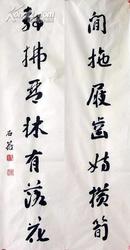 閒拖屐齒妨橫筍
靜拂琴牀有落花